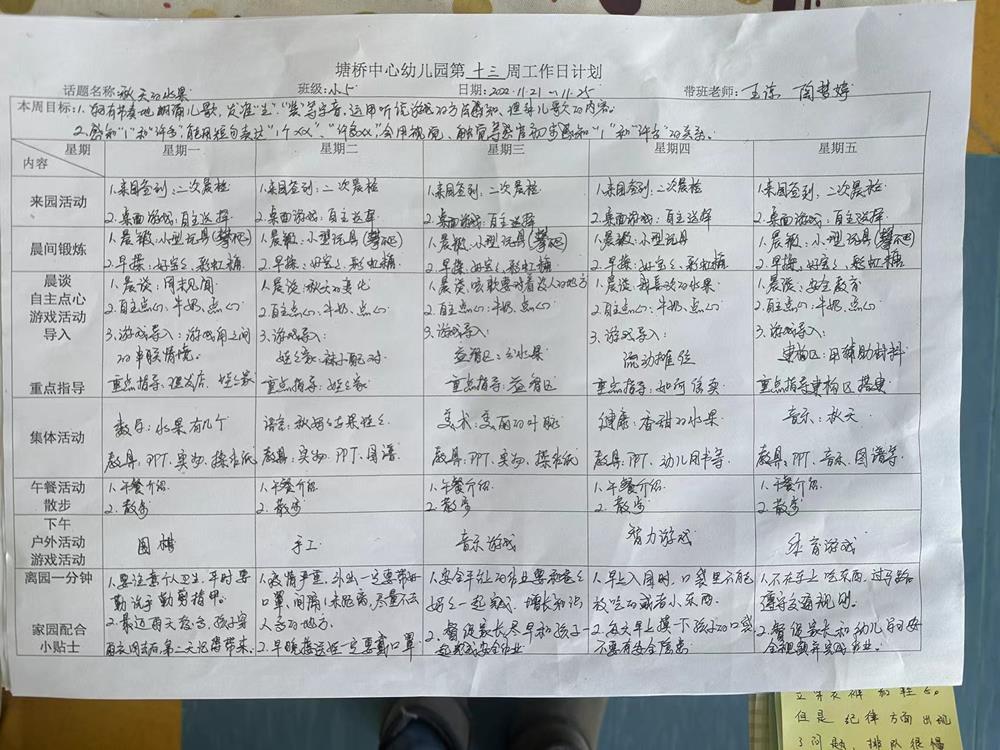 塘桥中心幼儿园第十三周工作日计划
话题名称:秋天的水果 班级:小 日期:2022.11.21~11.25 带班老师:
本周目标:1.
2.感知"1"和"许多",能用短句表达"1个××"、"许多××",
星期 内容 星期一 星期二 星期三 星期四 星期五
来园活动
1.来园签到:二次晨检 1.来园签到:二次晨检 1.来园签到:二次晨检 1.来园签到:二次晨检 1.来园签到:二次晨检
2.桌面游戏:自主选择 2.桌面游戏:自主选择 2.桌面游戏:自主选择 2.桌面游戏:自主选择 2.桌面游戏:自主选择
晨间锻炼
1.晨锻:小型玩具 1.晨锻:小型玩具 1.晨锻:小型玩具 1.晨锻:小型玩具 1.晨锻:小型玩具
2.早操:好宝宝、彩虹糖 2.早操:好宝宝、彩虹糖 2.早操:好宝宝、彩虹糖 2.早操:好宝宝、彩虹糖 2.早操:好宝宝、彩虹糖
晨谈
自主点心
游戏活动
导入
重点指导
1.晨谈:周末见闻 1.晨谈:秋天的变化 1.晨谈:咳嗽要对着没人的地方 1.晨谈:我喜欢的水果 1.晨谈:安全教育
2.自主点心:牛奶、点心 2.自主点心:牛奶、点心 2.自主点心:牛奶、点心 2.自主点心:牛奶、点心 2.自主点心:牛奶、点心
3.游戏导入:游戏角之间 3.游戏导入: 3.游戏导入: 3.游戏导入: 3.游戏导入:
的串联情境。 娃娃家:袜子配对 益智区:水果 流动摊位 建构区:用辅助材料
重点指导:理发店、娃娃家 重点指导:娃娃家 重点指导:益智区 重点指导:如何 重点指导:建构区搭建
集体活动
数学:水果有几个 语言: 美术:美丽的叶脉 健康:香甜的水果 音乐:秋天
教具:PPT、实物、操作纸 教具:实物、PPT、图谱 教具:PPT、实物、操作纸 教具:PPT、幼儿用书等 教具:PPT、音乐、图谱等
午餐活动
散步
1.午餐介绍 1.午餐介绍 1.午餐介绍 1.午餐介绍 1.午餐介绍
2.散步 2.散步 2.散步 2.散步 2.散步
下午
户外活动
游戏活动
围棋 手工 音乐游戏 智力游戏 体育游戏
离园一分钟
家园配合
小贴士
1.要注意个人卫生,平时要 1.疫情严重,外出一定要带好 1.安全平台的作业要和爸爸 1.早上入园时,口袋里不能 1.不在车上吃东西,过马路
勤洗手勤剪指甲。 口罩,间隔1米距离,尽量不去 妈妈一起完成,增长知识 放吃的或者小东西。 遵守交通规则。
2.最近雨天较多,孩子穿 人多的地方。 2.督促家长尽早和孩子 2.每天早上摸一下孩子的口袋 2.督促家长和幼儿学习安
第二天记得带来。 2.早晚接送也一定要戴口罩 一起完成安全作业 不要有安全隐患 全视频并完成作业。
但是纪律方面出现
了问题,排队很慢